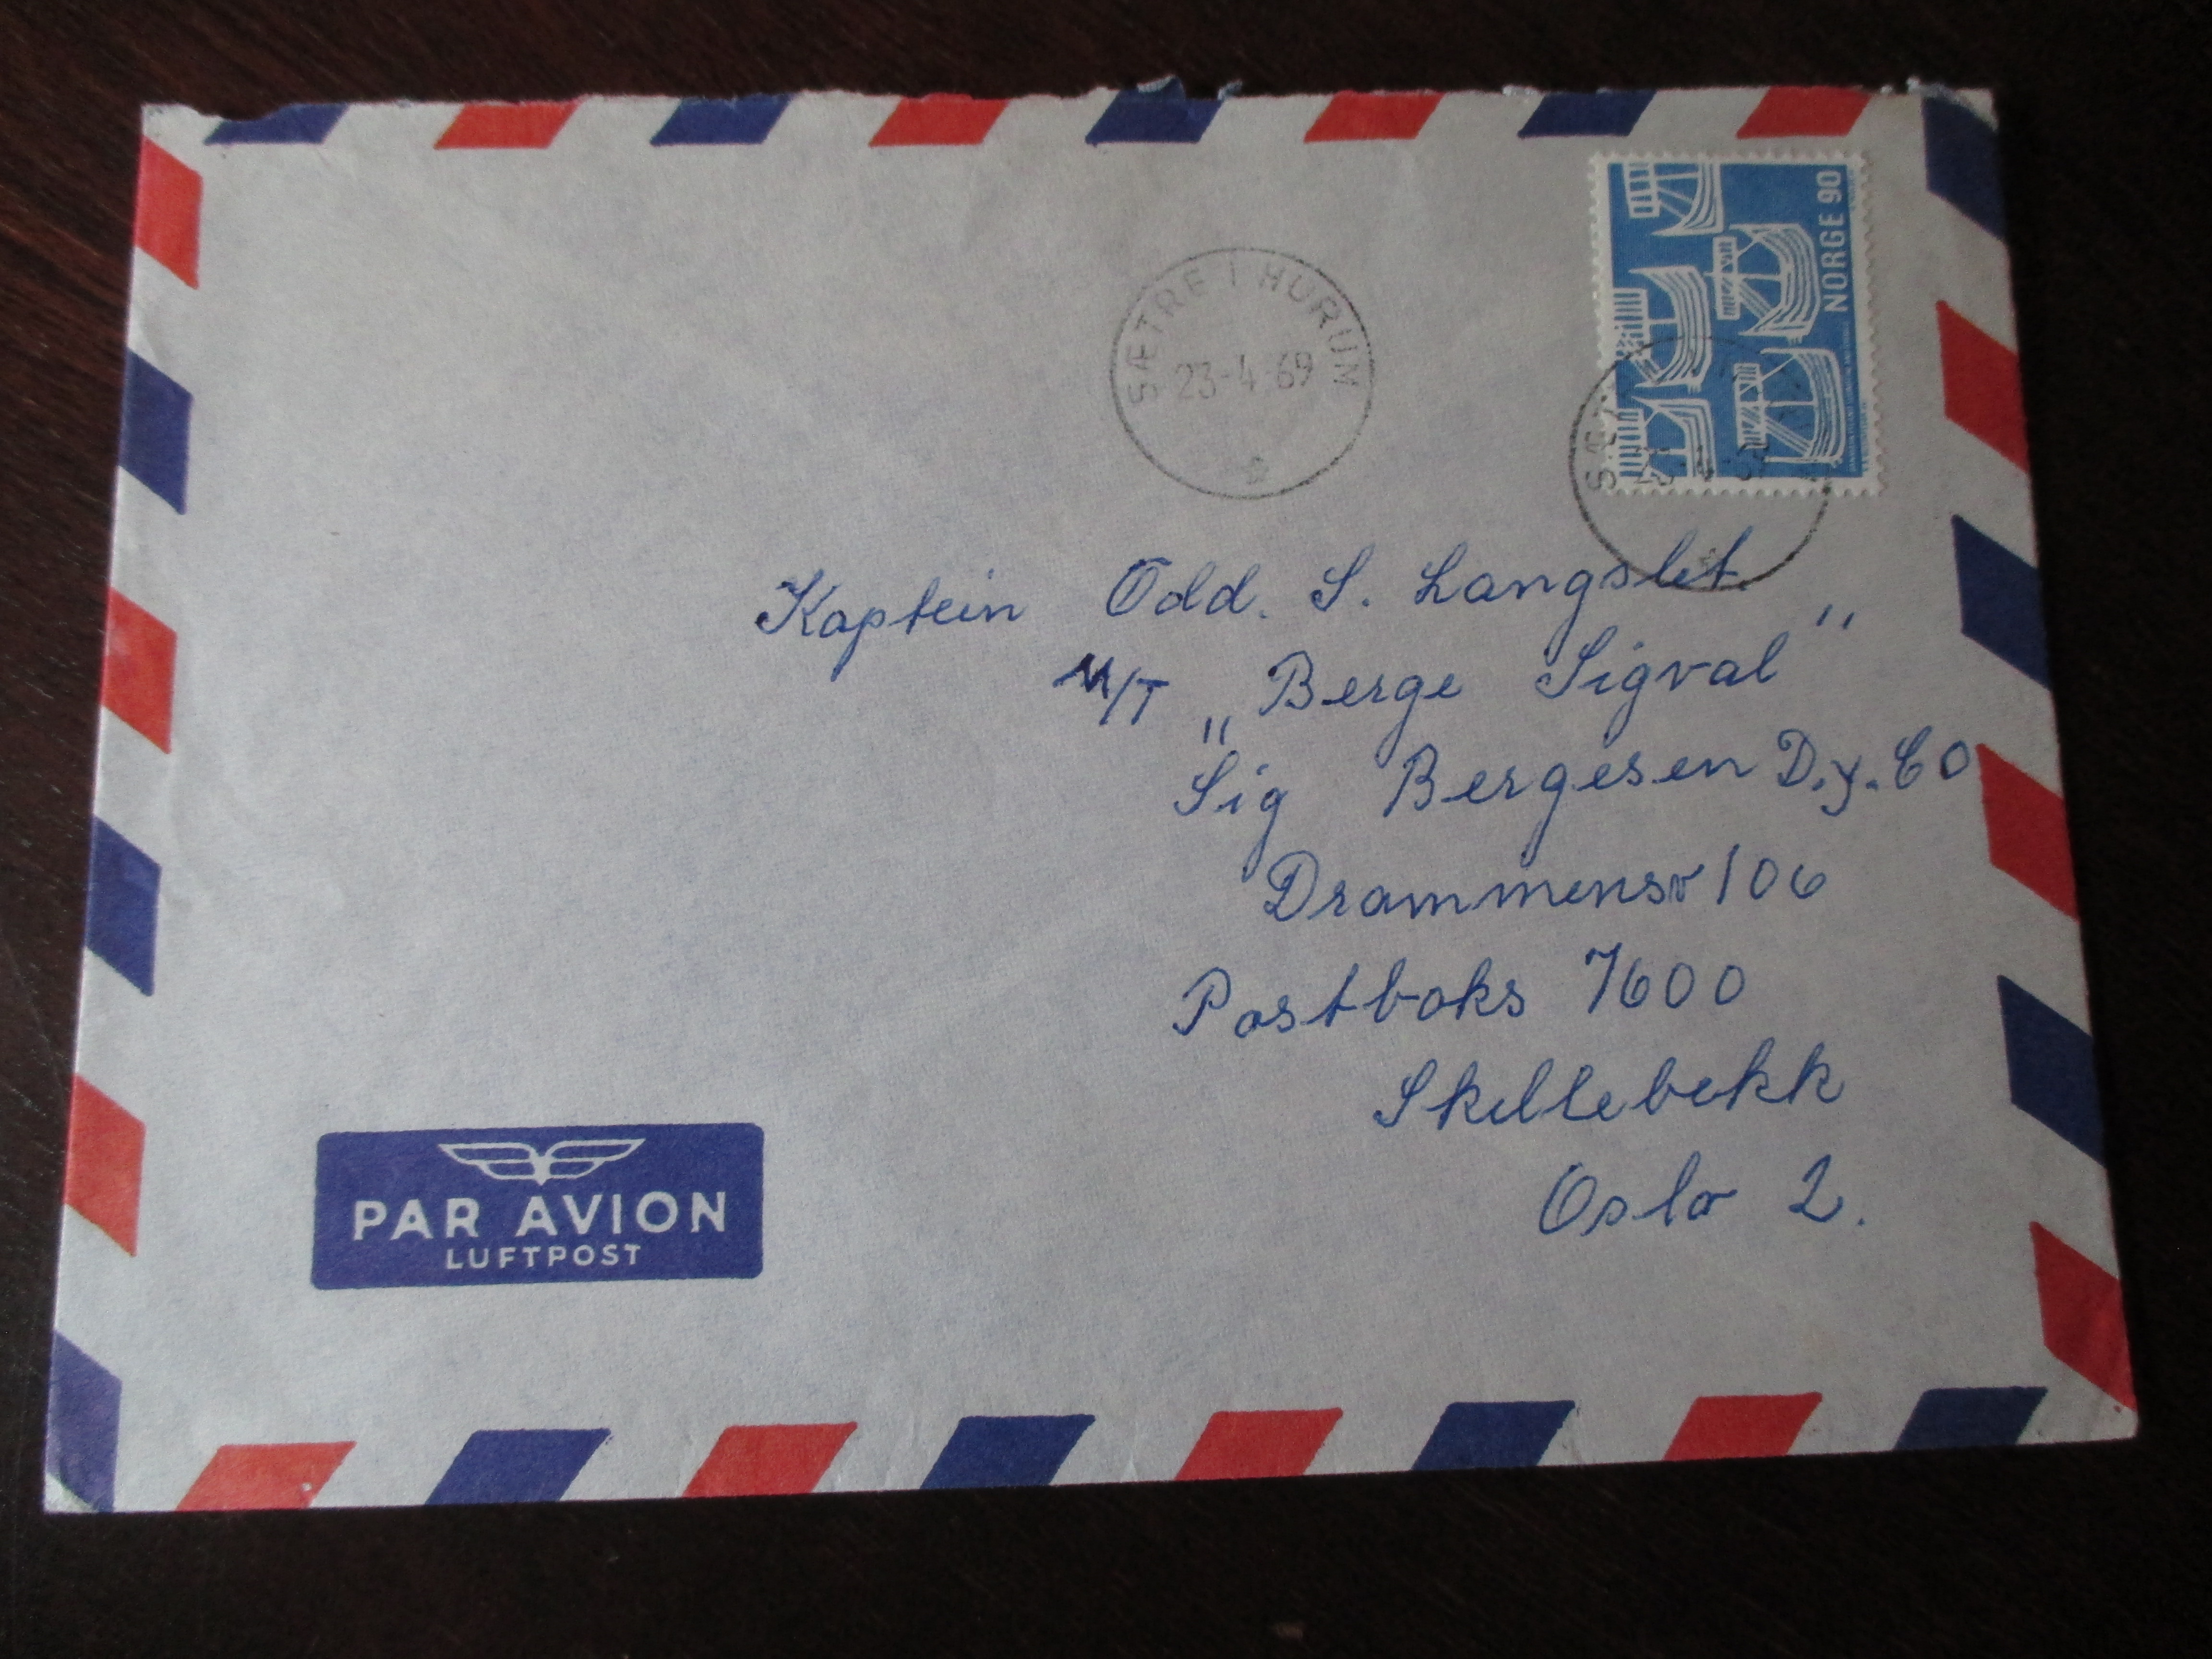 NORGE 90
SÆTRE I HURUM
23-4-69
SÆT
Kaptein Odd. S. Langslet.
M/T „Berge Sigval"
Sig Bergesen D.y. CO
Drammensv 106
Postboks 7600
Skillebekk
Oslo 2.
PAR AVION
LUFTPOST